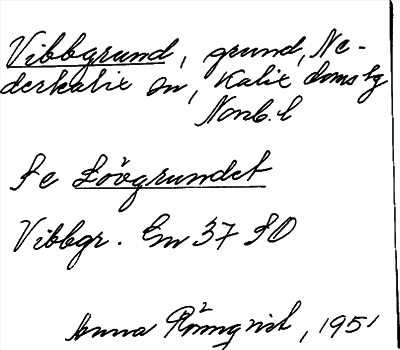 Vibbgrund, grund, Ne-
derkalix sn, Kalix domsag
Nonb. l
Se Lövgrundet
Vibbgr. En 37 SO
Anna Rönnqvist, 1951